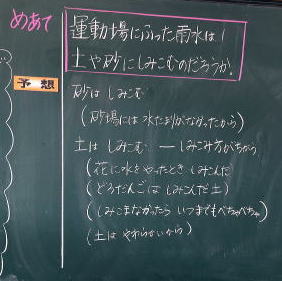 めあて
運動場にふった雨水は、
土や砂にしみこむのだろうか。
予想
砂はしみこむ
(砂場には水たまりがなかったから)
土はしみこむ ― しみこみ方がちがう
(花に水をやったときしみこんだ)
(どろだんごはしみこんだ土)
(しみこまなかったらいつまでもべちゃべちゃ)
(土はやわらかいから)